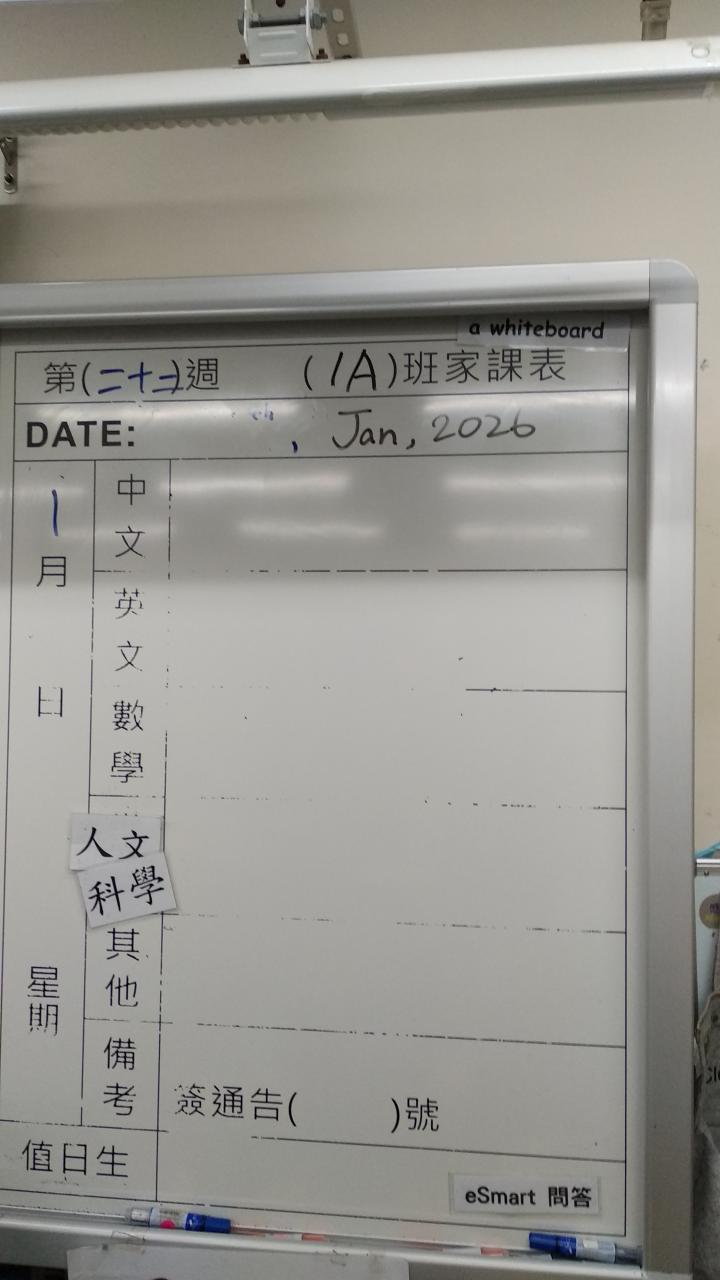 a whiteboard
第(二十二)週 (1A)班家課表
DATE: , Jan, 2026
1月 日 星期
中文
英文
數學
人文
科學
其他
備考 簽通告( )號
值日生
eSmart 問答